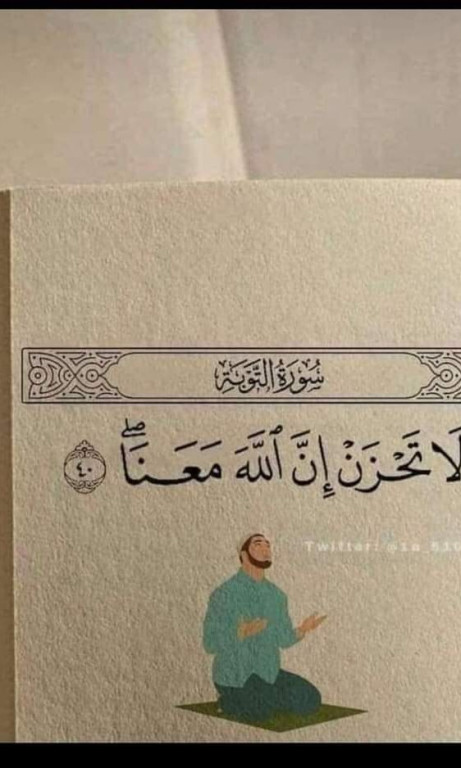 سُورَةُ التَّوْبَةِ
لَا تَحْزَنْ إِنَّ ٱللَّهَ مَعَنَاۖ ٤٠
Twitter: